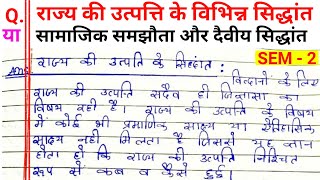 Q. राज्य की उत्पत्ति के विभिन्न सिद्धांत
या सामाजिक समझौता और दैवीय सिद्धांत
SEM - 2
Ans. राज्य की उत्पति के सिद्धांत : विद्वानों के लिए
राज्य की उत्पति सदैव ही जिज्ञासा का
विषय रही है। राज्य की उत्पति के विषय
में कोई भी प्रमाणिक साक्ष्य या ऐतिहासिक
साक्ष्य नहीं मिलता है जिससे यह ज्ञात
होता हो कि राज्य की उत्पति निश्चित
रूप से कब व कैसे हुई।